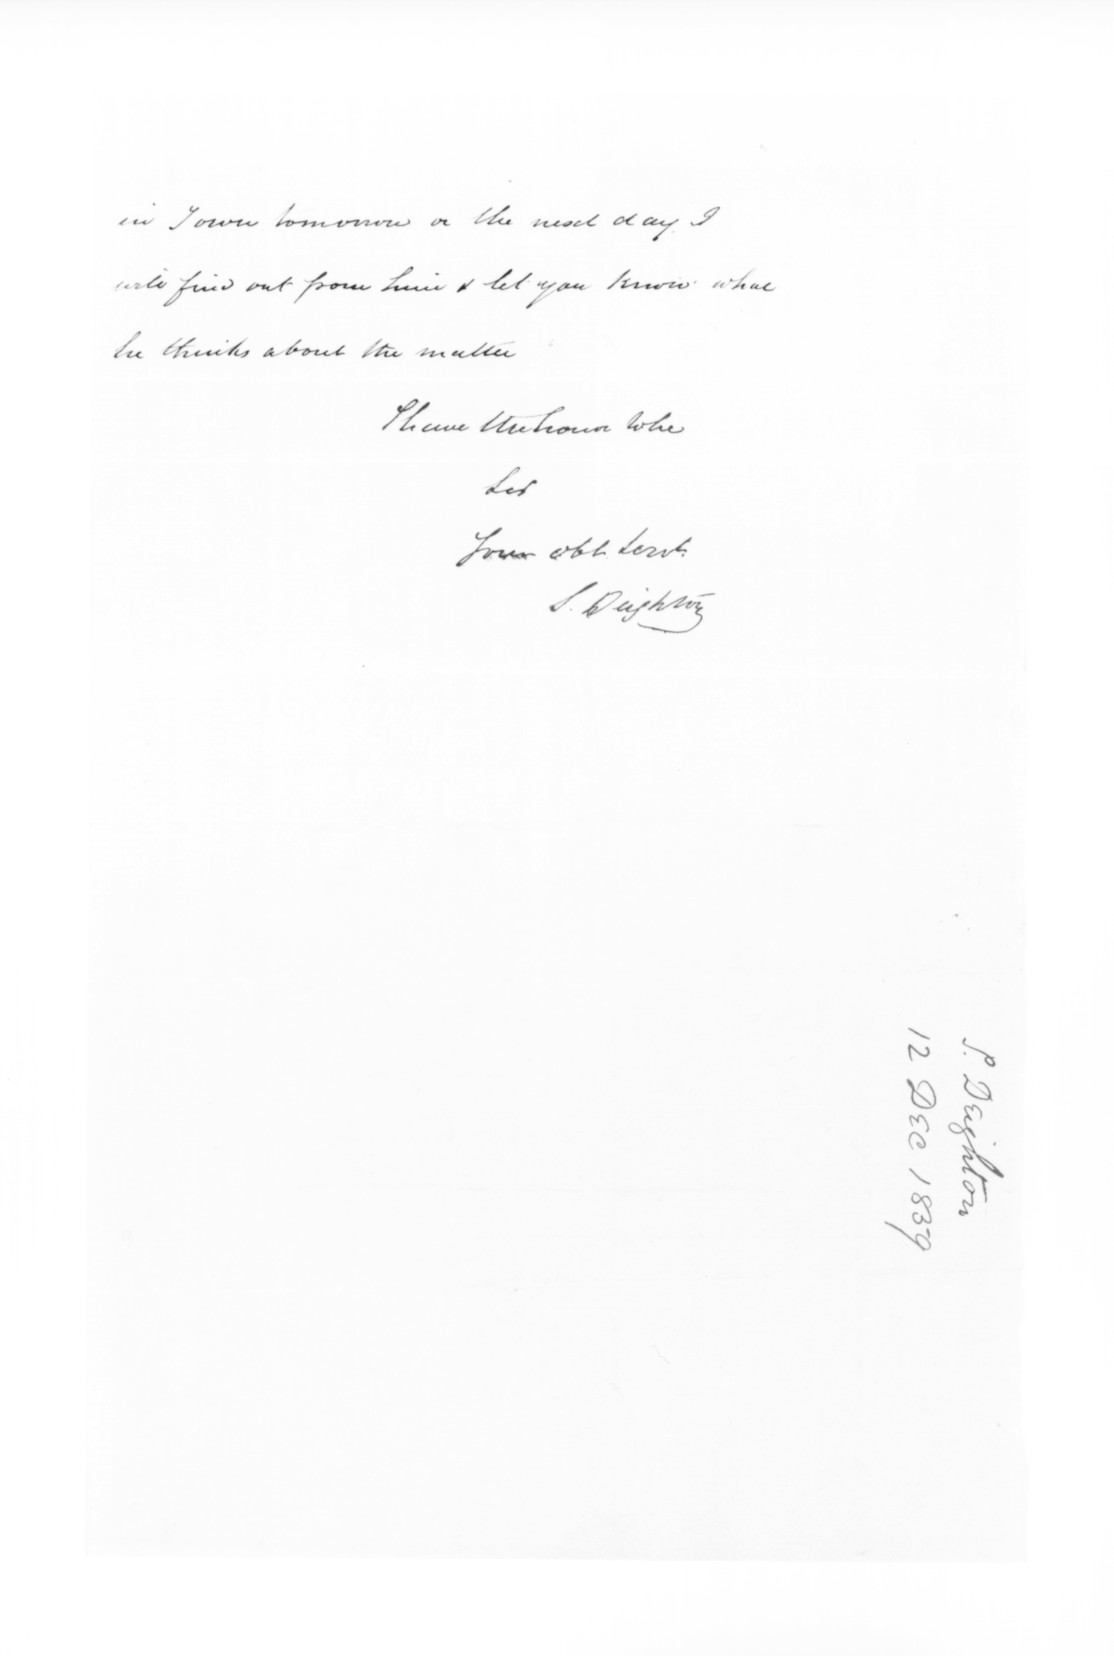 in Town tomorrow or the next day I
will find out from him & let you know what
he thinks about the matter
I have the honor to be
Sir
Your obt. Servt.
S. Deighton
S. Deighton
12 DEC 1839